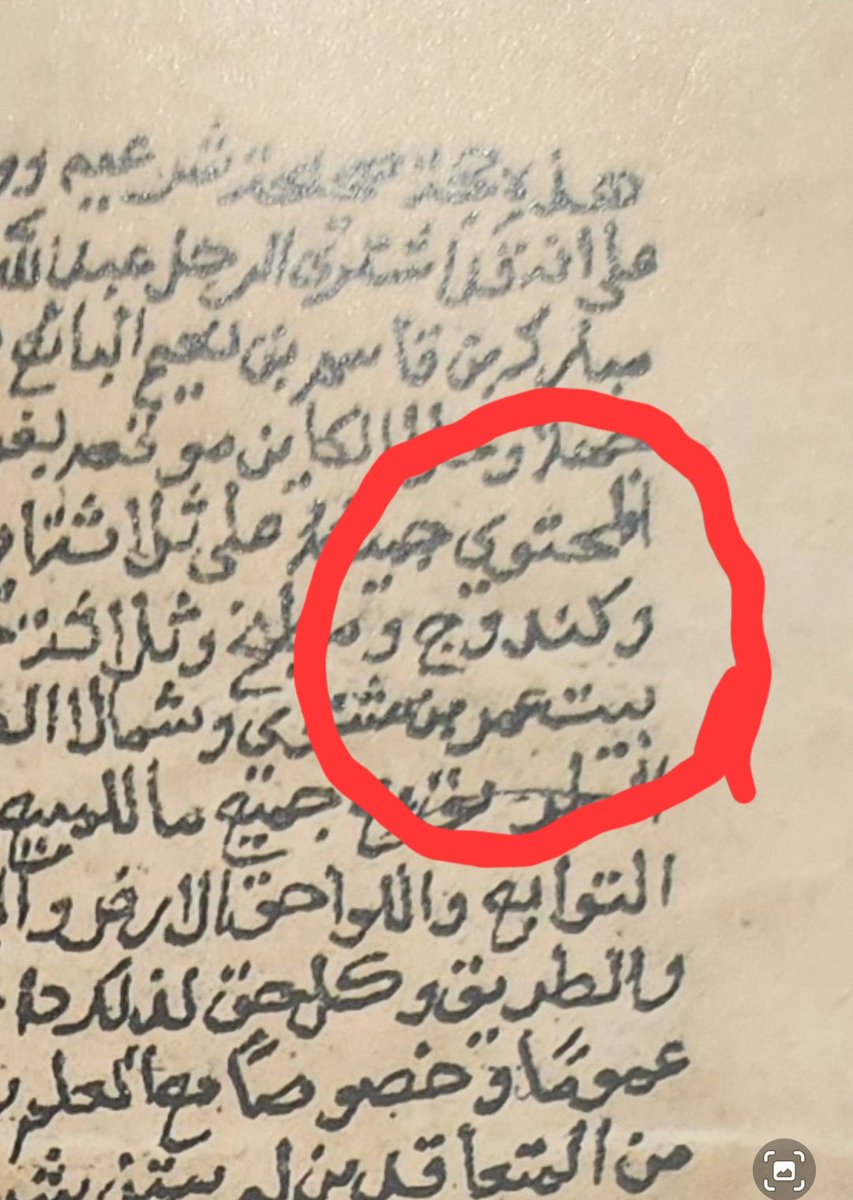 هذه حجة صحيحة شرعيه وو
على انه قد اشترى الرجل عبدالله
مبارك بن قاسم بن نعيم البائع
الكاين موضعه
المحتوي جميعه على ثلاثة
وكندوج ومطبخ وثلاثة
بيت عمر بن مشاري وشمالا
الطريق بتوابع جميع ما للمبيع
التوابع واللواحق الارض و
والطريق وكل حق لذلك
عموما وخصوصا مع العلم
من المتعاقدين لم